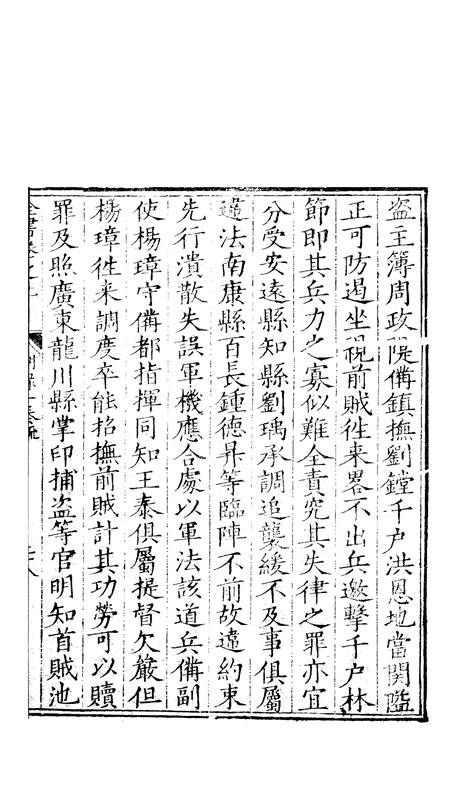 盜主簿周政隄備鎮撫劉鏜千戶洪恩地當關隘
正可防遏坐視前賊徃来畧不出兵邀擊千户林
節即其兵力之寡似難全責究其失律之罪亦宜
分受安遠縣知縣劉瑀承調追襲緩不及事俱屬
違法南康縣百長鍾德昇等臨陣不前故違約束
先行潰散失誤軍機應合處以軍法該道兵備副
使楊璋守備都指揮同知王泰俱屬提督欠嚴但
楊璋徃来調度卒能招撫前賊計其功勞可以贖
罪及照廣東龍川縣掌印捕盜等官明知首賊池